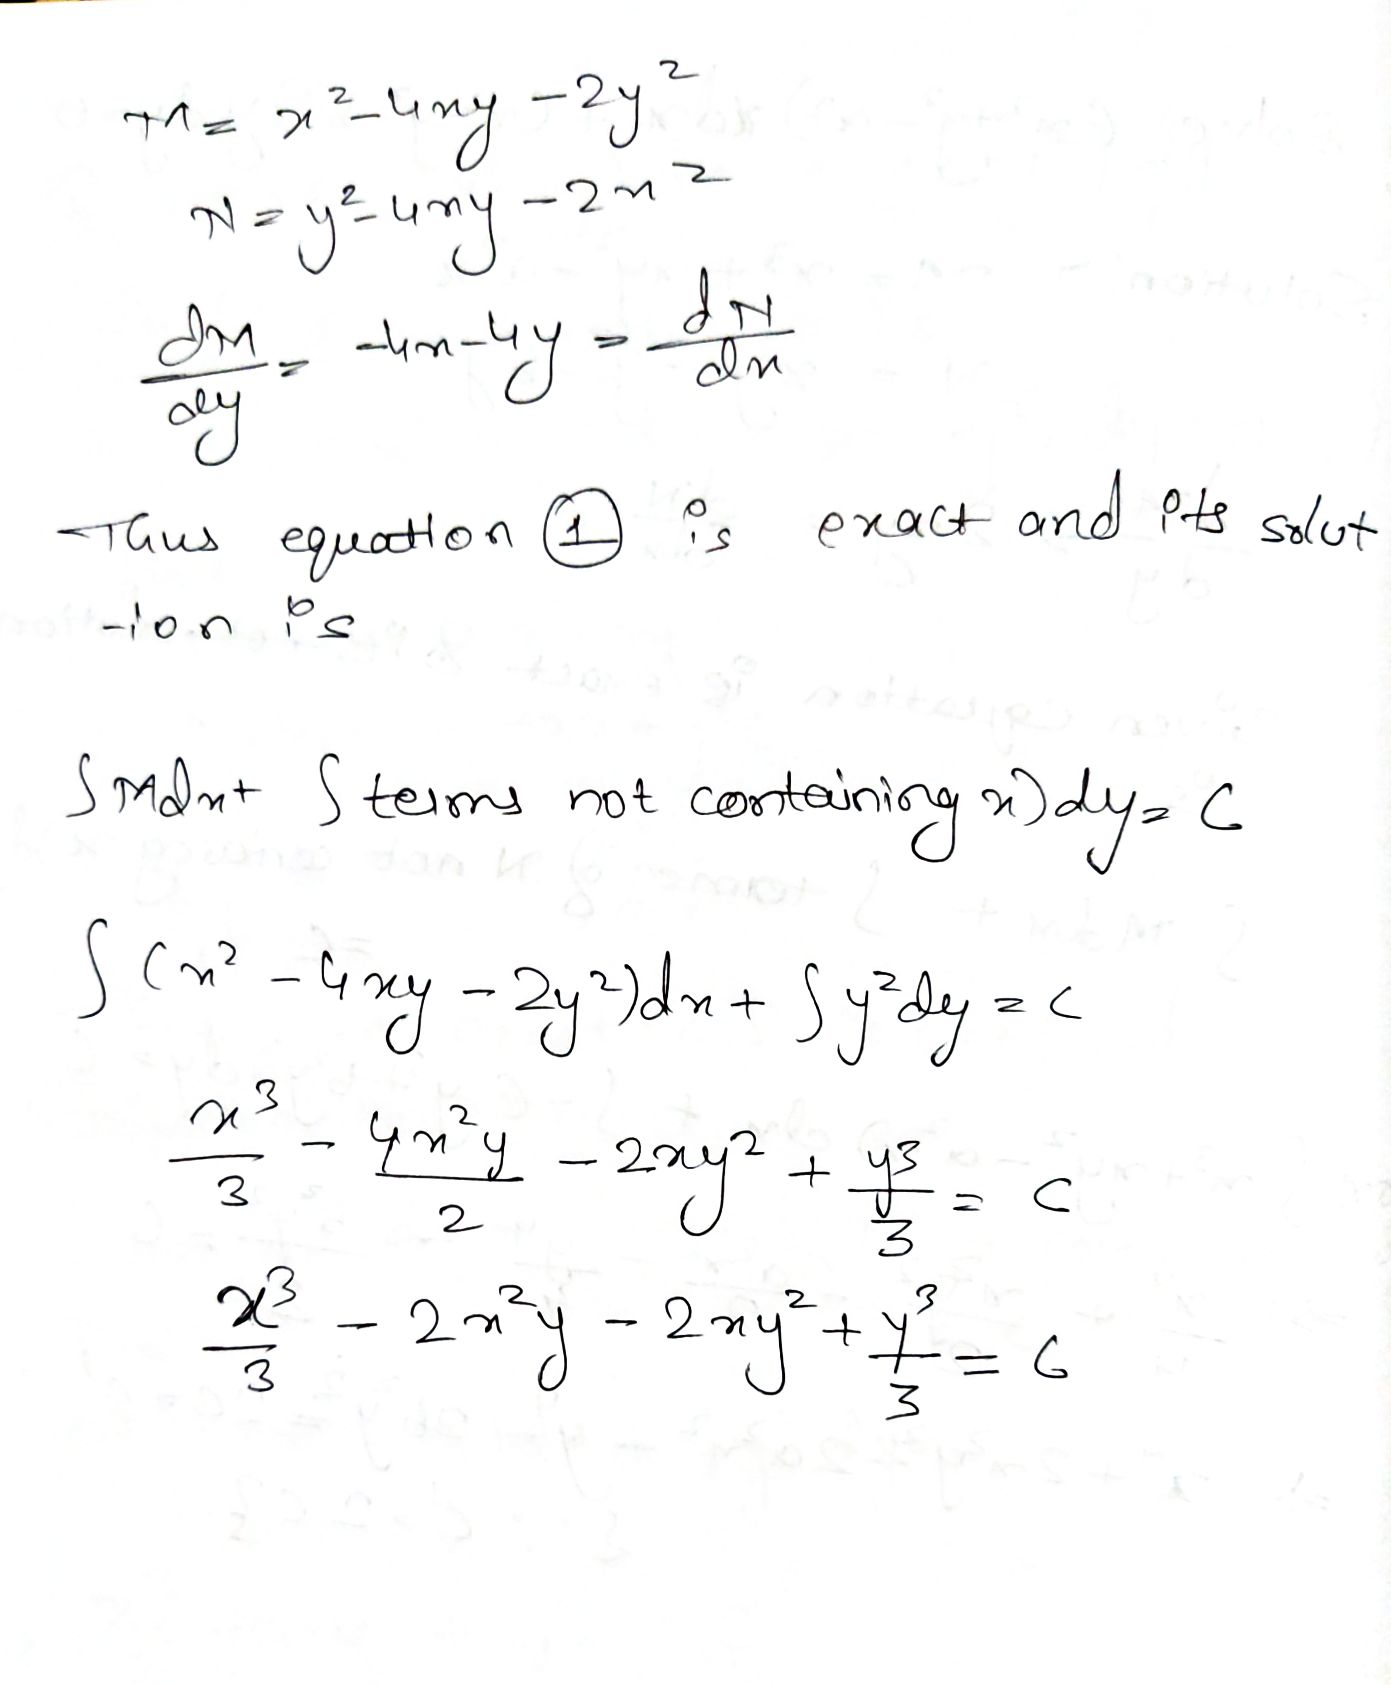 M = x² - 4xy - 2y²
N = y² - 4xy - 2x²
dM/dy = -4x - 4y = dN/dx
Thus equation ① is exact and its solut
-ion is
∫ Mdx + ∫ terms not containing x) dy = C
∫ (x² - 4xy - 2y²)dx + ∫ y²dy = c
x³/3 - 4x²y/2 - 2xy² + y³/3 = C
x³/3 - 2x²y - 2xy² + y³/3 = C